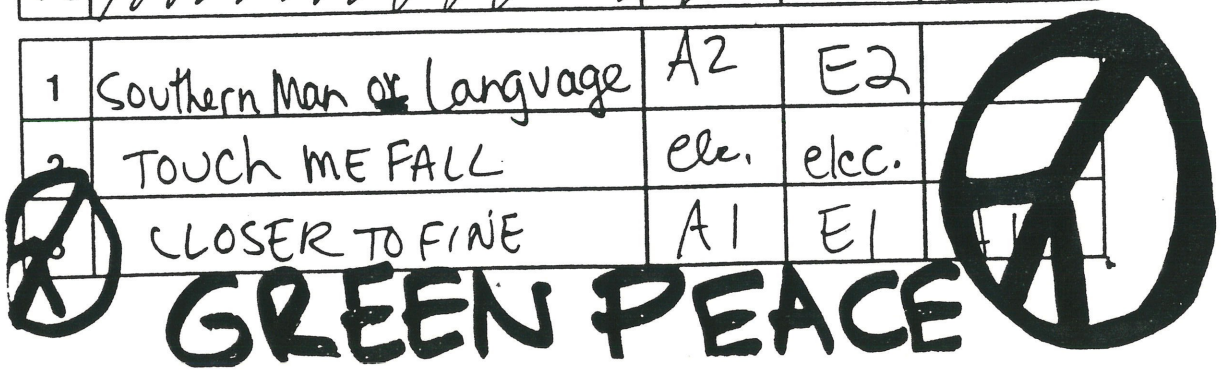 1 Southern Man or Language A2 E2
2 TOUCH ME FALL ele. elec.
CLOSER TO FINE A1 E1
GREEN PEACE